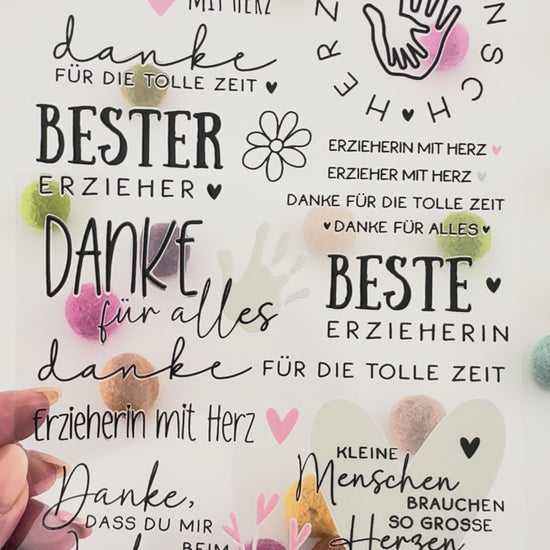 MIT HERZ
danke
FÜR DIE TOLLE ZEIT
BESTER
ERZIEHER
DANKE
für alles
danke FÜR DIE TOLLE ZEIT
Erzieherin mit Herz
Danke,
DASS DU MIR
BEIM
HERZ
MENSCH
ERZIEHERIN MIT HERZ
ERZIEHER MIT HERZ
DANKE FÜR DIE TOLLE ZEIT
DANKE FÜR ALLES
BESTE
ERZIEHERIN
KLEINE
Menschen
BRAUCHEN
SO GROSSE
Herzen